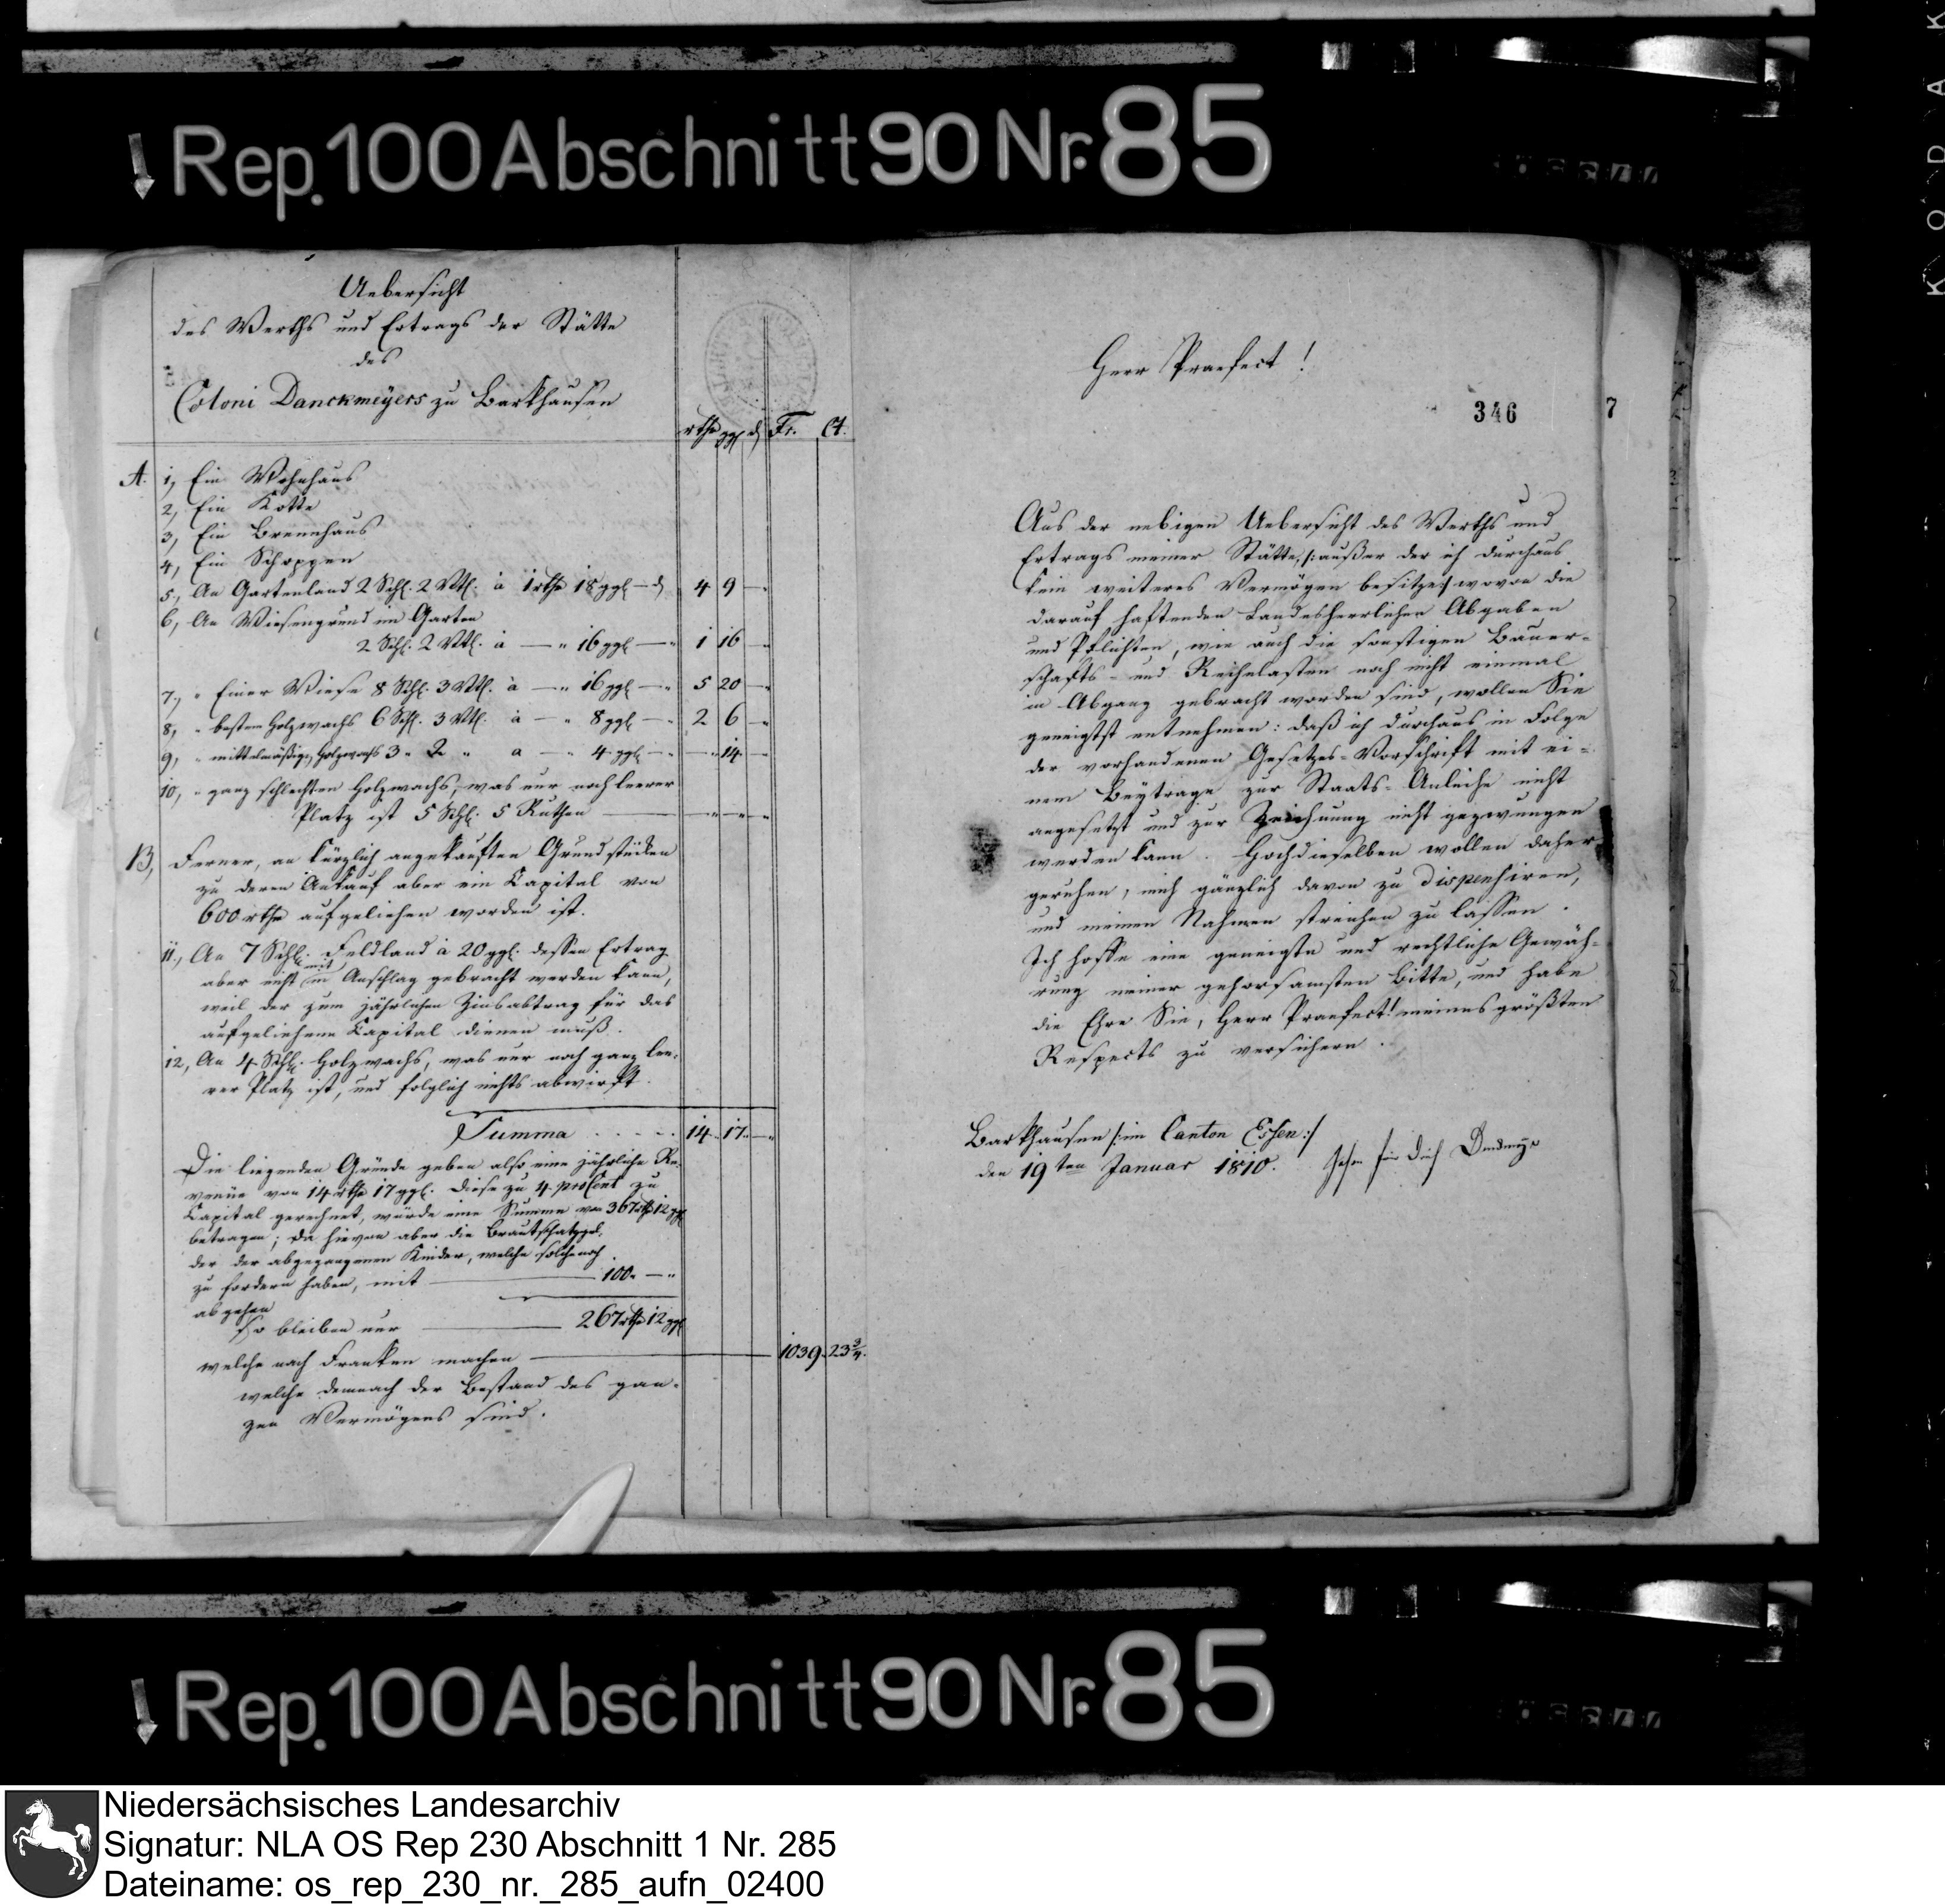 Rep. 100 Abschnitt 90 Nr. 85
Uebersicht
des Werths und Ertrags der Stätte
des
Coloni Danckmeyers zu Barkhausen
rthr ggl ₰ Fr. Ct.
A. 1, Ein Wohnhaus
2, Ein Kotte
3, Ein Brennhaus
4, Ein Schoppen
5, An Gartenland 2 Schl. 2 Vtl. à 1 rthr 18 ggl — ₰ 4 9 —
6, An Wiesengrund im Garten
2 Schl. 2 Vtl. à — " 16 ggl — " 1 16 —
7, " Einer Wiese 8 Schl. 3 Vtl. à — " 16 ggl — " 5 20 —
8, " bestem Holzwachs 6 Schl. 3 Vtl. à — " 8 ggl — " 2 6 —
9, " mittelmäßigen Holzwachs 3 " 2 " a — " 4 ggl — " — 14 —
10, " ganz schlechten Holzwachs, was nur noch leerer
Platz ist 5 Schl. 5 Ruthen — — " — " — "
B, Ferner, an kürzlich angekauften Grundstücken
zu deren Ankauf aber ein Capital von
600 rthr aufgeliehen worden ist.
11, An 7 Schl. Feldland à 20 ggl. dessen Ertrag
aber nicht mit in Anschlag gebracht werden kann,
weil der zum jährlichen Zinsabtrag für das
aufgeliehene Capital dienen muß.
12, An 4 Schl. Holzwachs, was nur noch ganz lee-
rer Platz ist, und folglich nichts abwirft.
Summa . . . . . 14 17 —
Die liegenden Gründe geben also eine jährliche Re-
venüe von 14 rthr 17 ggl. Diese zu 4 pro Cent zu
Capital gerechnet, würde eine Summe von 367 rthr 12 ggl
betragen; da hievon aber die Brautschatzgel-
der der abgegangenen Kinder, welche solche noch
zu fordern haben, mit — 100 " — "
abgehen
so bleiben nur — 267 rthr 12 ggl
welche nach Franken machen — 1039. 23 3/4.
welche demnach der Bestand des gan-
zen Vermögens sind.
Herr Praefect!
346
7
Aus der nebigen Uebersicht des Werths und
Ertrags meiner Stätte, /: außer der ich durchaus
kein weiteres Vermögen besitze :/ wovon die
darauf haftenden Landesherrlichen Abgaben
und Pflichten, wie auch die sonstigen Bauer-
schafts- und Reihelasten noch nicht einmal
in Abgang gebracht worden sind, wollen Sie
geneigtst entnehmen: daß ich durchaus in Folge
der vorhandenen Gesetzes-Vorschrift mit ei-
nem Beytrage zur Staats-Anleihe nicht
angesetzt und zur Zeichnung nicht gezwungen
werden kann. Hochdieselben wollen daher
geruhen, mich gänzlich davon zu dispensiren,
und meinen Nahmen streichen zu lassen.
Ich hoffe eine geneigte und rechtliche Gewäh-
rung meiner gehorsamsten Bitte, und habe
die Ehre Sie, Herr Praefect! meines größten
Respects zu versichern.
Barkhausen /: im Canton Essen :/
den 19ten Januar 1810.
Rep. 100 Abschnitt 90 Nr. 85
Niedersächsisches Landesarchiv
Signatur: NLA OS Rep 230 Abschnitt 1 Nr. 285
Dateiname: os_rep_230_nr._285_aufn_02400
KODAK